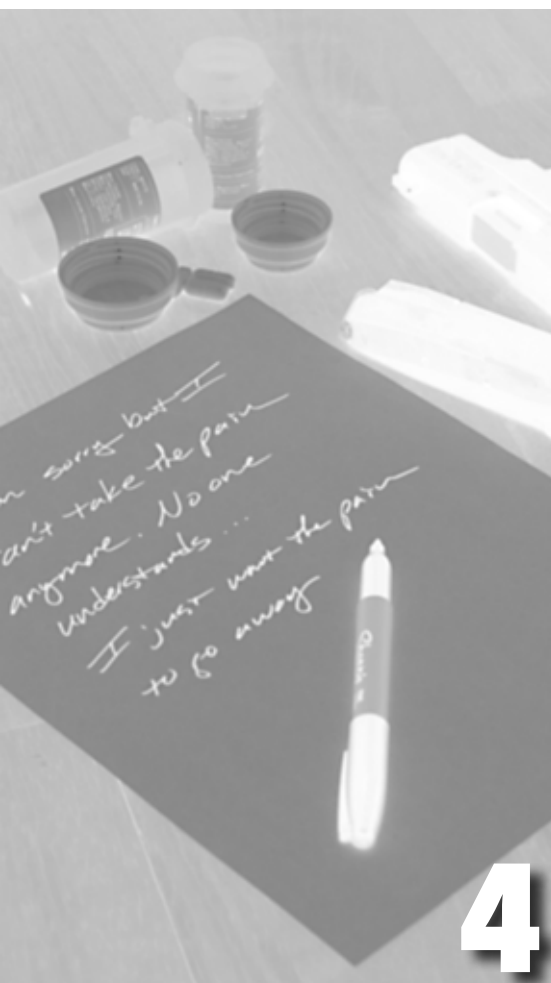 m sorry but I
an't take the pain
anymore. No one
understands...
I just want the pain
to go away
4